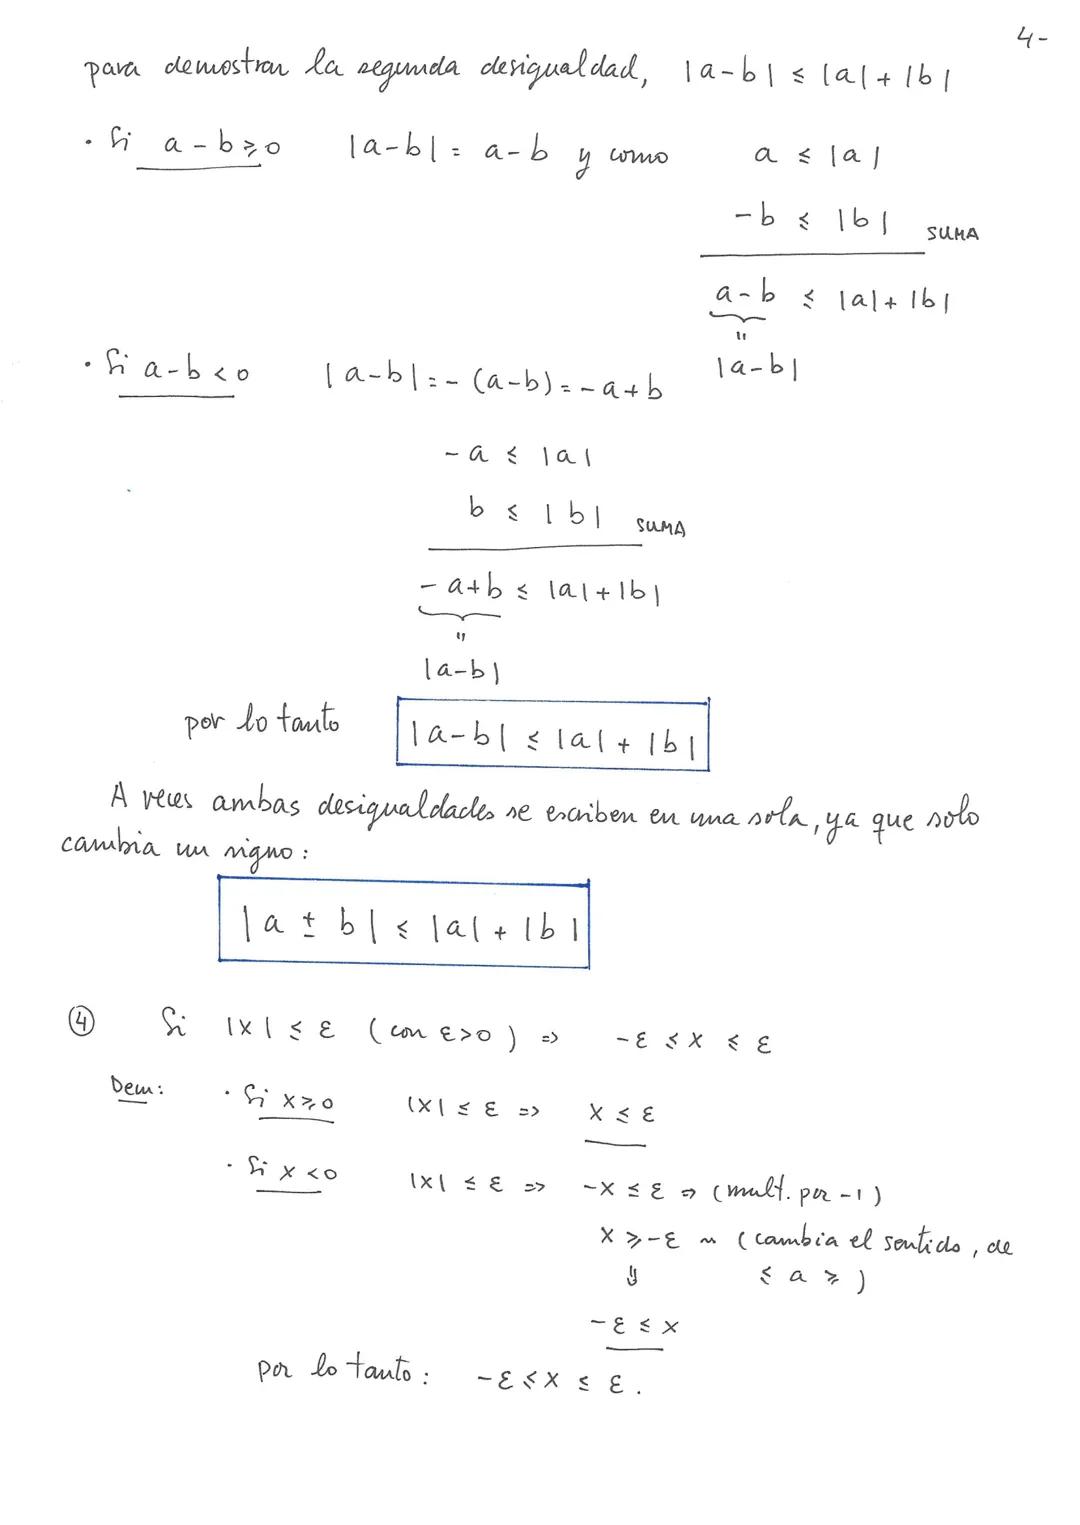 4-
para demostrar la segunda desigualdad, |a-b| ≤ |a| + |b|
· Si a - b ≥ 0 |a-b| = a-b y como a ≤ |a|
-b ≤ |b| SUMA
a-b ≤ |a| + |b|
"
|a-b|
· Si a-b < 0 |a-b| = -(a-b) = -a+b
-a ≤ |a|
b ≤ |b| SUMA
-a+b ≤ |a| + |b|
"
|a-b|
por lo tanto |a-b| ≤ |a| + |b|
A veces ambas desigualdades se escriben en una sola, ya que solo
cambia un signo:
|a ± b| ≤ |a| + |b|
④ Si |x| ≤ ε (con ε>0) => -ε ≤ x ≤ ε
Dem: · Si x ≥ 0 |x| ≤ ε => x ≤ ε
· Si x < 0 |x| ≤ ε => -x ≤ ε => (mult. por -1)
x ≥ -ε ~ (cambia el sentido, de
⇓ ≤ a ≥)
-ε ≤ x
por lo tanto: -ε ≤ x ≤ ε.